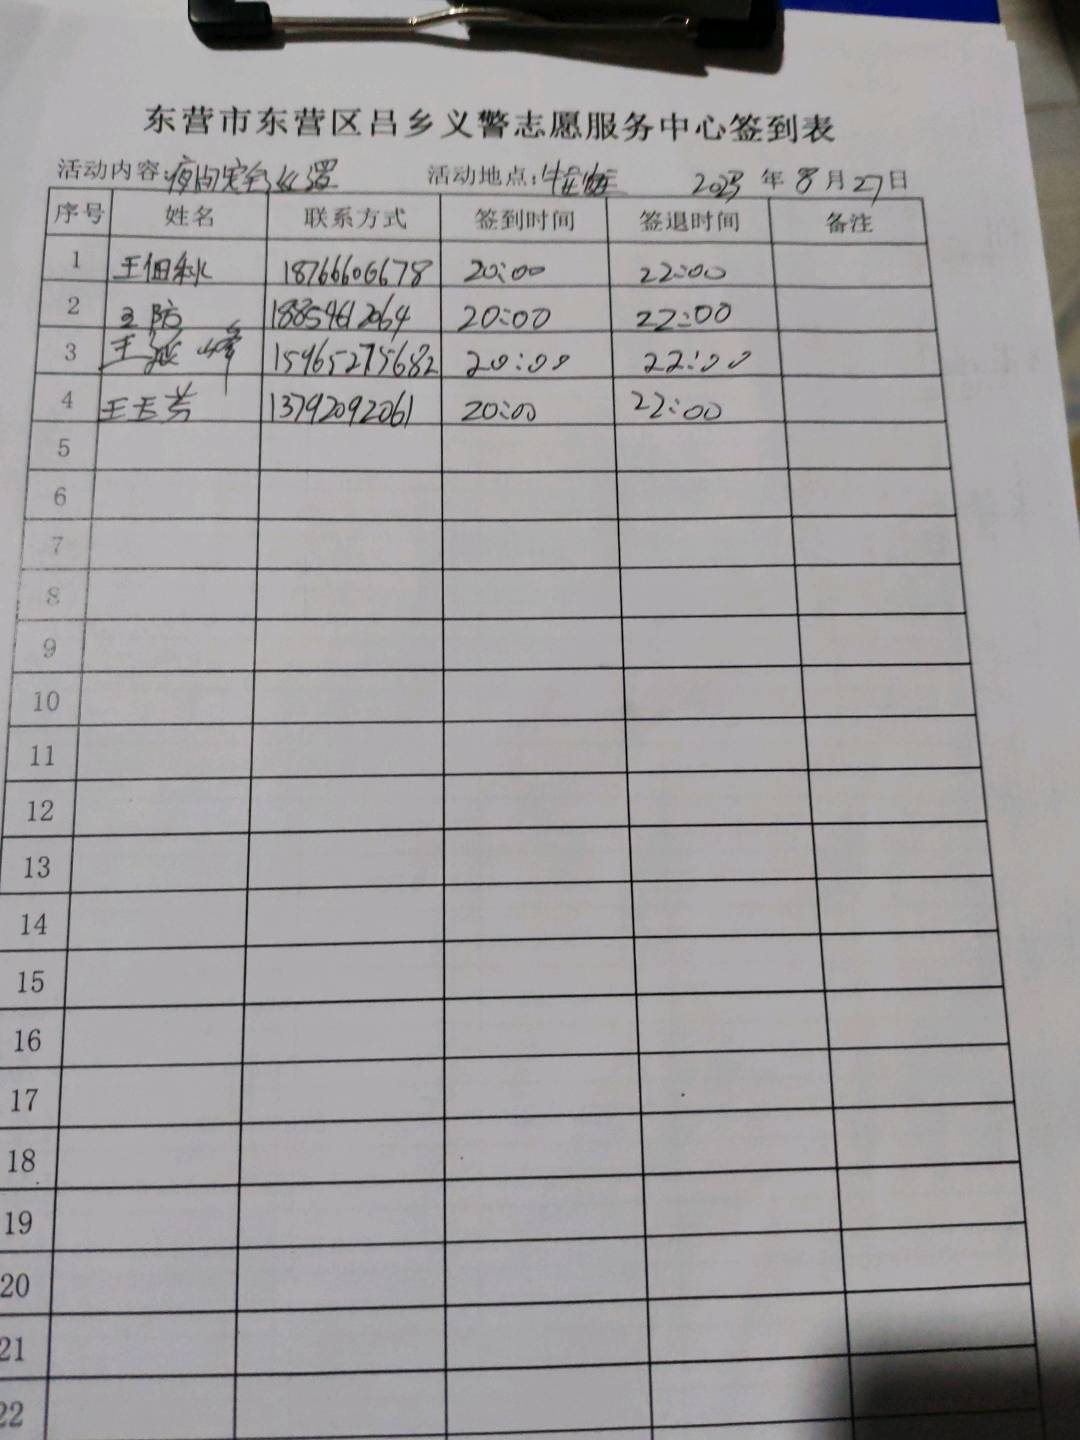 东营市东营区吕乡义警志愿服务中心签到表
活动内容:夜间安全 活动地点: 2023 年 8 月 27 日
序号 姓名 联系方式 签到时间 签退时间 备注
1 王佃秋 18766606678 20:00 22:00
2 18854612064 20:00 22:00
3 王延峰 15965275682 20:00 22:00
4 王玉芳 13792092061 20:00 22:00
5
6
7
8
9
10
11
12
13
14
15
16
17
18
19
20
21
22